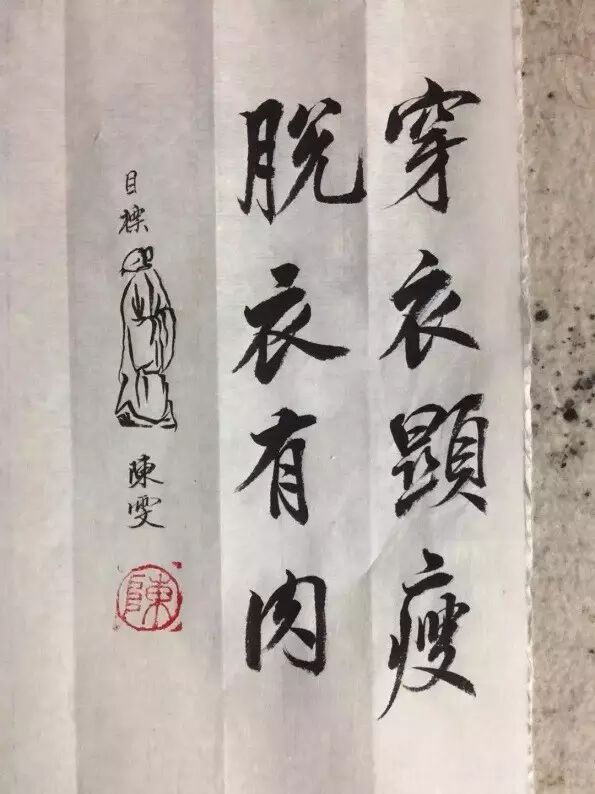 穿衣顕瘦
脱衣有肉
目標
陳雯
陳